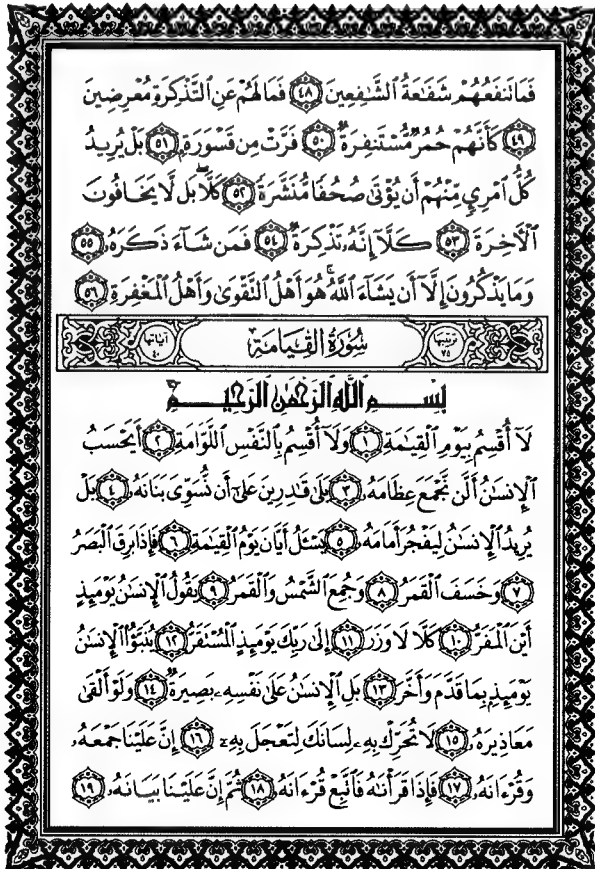 فَمَا تَنفَعُهُمْ شَفَٰعَةُ ٱلشَّٰفِعِينَ ٤٨ فَمَا لَهُمْ عَنِ ٱلتَّذْكِرَةِ مُعْرِضِينَ
٤٩ كَأَنَّهُمْ حُمُرٌ مُّسْتَنفِرَةٌ ٥٠ فَرَّتْ مِن قَسْوَرَةٍ ٥١ بَلْ يُرِيدُ
كُلُّ ٱمْرِئٍ مِّنْهُمْ أَن يُؤْتَىٰ صُحُفًا مُّنَشَّرَةً ٥٢ كَلَّا بَل لَّا يَخَافُونَ
ٱلْآخِرَةَ ٥٣ كَلَّآ إِنَّهُۥ تَذْكِرَةٌ ٥٤ فَمَن شَآءَ ذَكَرَهُۥ ٥٥
وَمَا يَذْكُرُونَ إِلَّآ أَن يَشَآءَ ٱللَّهُ هُوَ أَهْلُ ٱلتَّقْوَىٰ وَأَهْلُ ٱلْمَغْفِرَةِ ٥٦
ترتيبها ٧٥ سُورَةُ القِيَامَةِ آياتها ٤٠
بِسْمِ ٱللَّهِ ٱلرَّحْمَٰنِ ٱلرَّحِيمِ
لَآ أُقْسِمُ بِيَوْمِ ٱلْقِيَٰمَةِ ١ وَلَآ أُقْسِمُ بِٱلنَّفْسِ ٱللَّوَّامَةِ ٢ أَيَحْسَبُ
ٱلْإِنسَٰنُ أَلَّن نَّجْمَعَ عِظَامَهُۥ ٣ بَلَىٰ قَٰدِرِينَ عَلَىٰٓ أَن نُّسَوِّىَ بَنَانَهُۥ ٤ بَلْ
يُرِيدُ ٱلْإِنسَٰنُ لِيَفْجُرَ أَمَامَهُۥ ٥ يَسْـَٔلُ أَيَّانَ يَوْمُ ٱلْقِيَٰمَةِ ٦ فَإِذَا بَرِقَ ٱلْبَصَرُ
٧ وَخَسَفَ ٱلْقَمَرُ ٨ وَجُمِعَ ٱلشَّمْسُ وَٱلْقَمَرُ ٩ يَقُولُ ٱلْإِنسَٰنُ يَوْمَئِذٍ
أَيْنَ ٱلْمَفَرُّ ١٠ كَلَّا لَا وَزَرَ ١١ إِلَىٰ رَبِّكَ يَوْمَئِذٍ ٱلْمُسْتَقَرُّ ١٢ يُنَبَّؤُا۟ ٱلْإِنسَٰنُ
يَوْمَئِذٍۭ بِمَا قَدَّمَ وَأَخَّرَ ١٣ بَلِ ٱلْإِنسَٰنُ عَلَىٰ نَفْسِهِۦ بَصِيرَةٌ ١٤ وَلَوْ أَلْقَىٰ
مَعَاذِيرَهُۥ ١٥ لَا تُحَرِّكْ بِهِۦ لِسَانَكَ لِتَعْجَلَ بِهِۦٓ ١٦ إِنَّ عَلَيْنَا جَمْعَهُۥ
وَقُرْءَانَهُۥ ١٧ فَإِذَا قَرَأْنَٰهُ فَٱتَّبِعْ قُرْءَانَهُۥ ١٨ ثُمَّ إِنَّ عَلَيْنَا بَيَانَهُۥ ١٩